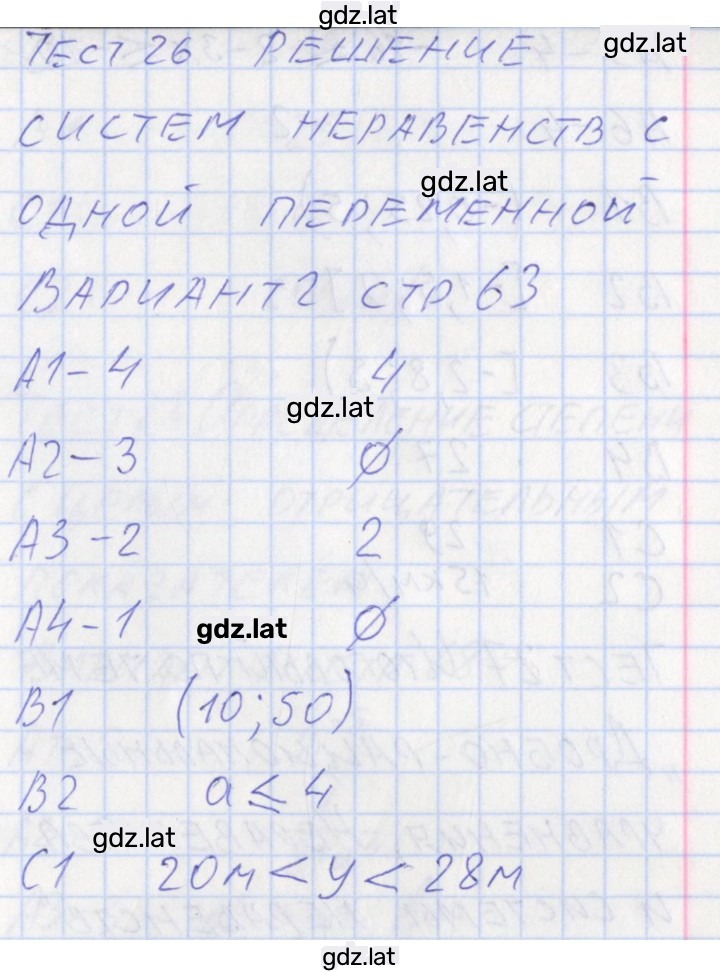 gdz.lat
ТЕСТ 26 РЕШЕНИЕ
gdz.lat
СИСТЕМ НЕРАВЕНСТВ С
gdz.lat
ОДНОЙ ПЕРЕМЕННОЙ
ВАРИАНТ 2 СТР 63
А1 - 4 4
gdz.lat
А2 - 3 ∅
А3 - 2 2
А4 - 1 ∅
gdz.lat
В1 (10; 50)
В2 a ≤ 4
gdz.lat
С1 20м < y < 28м
gdz.lat